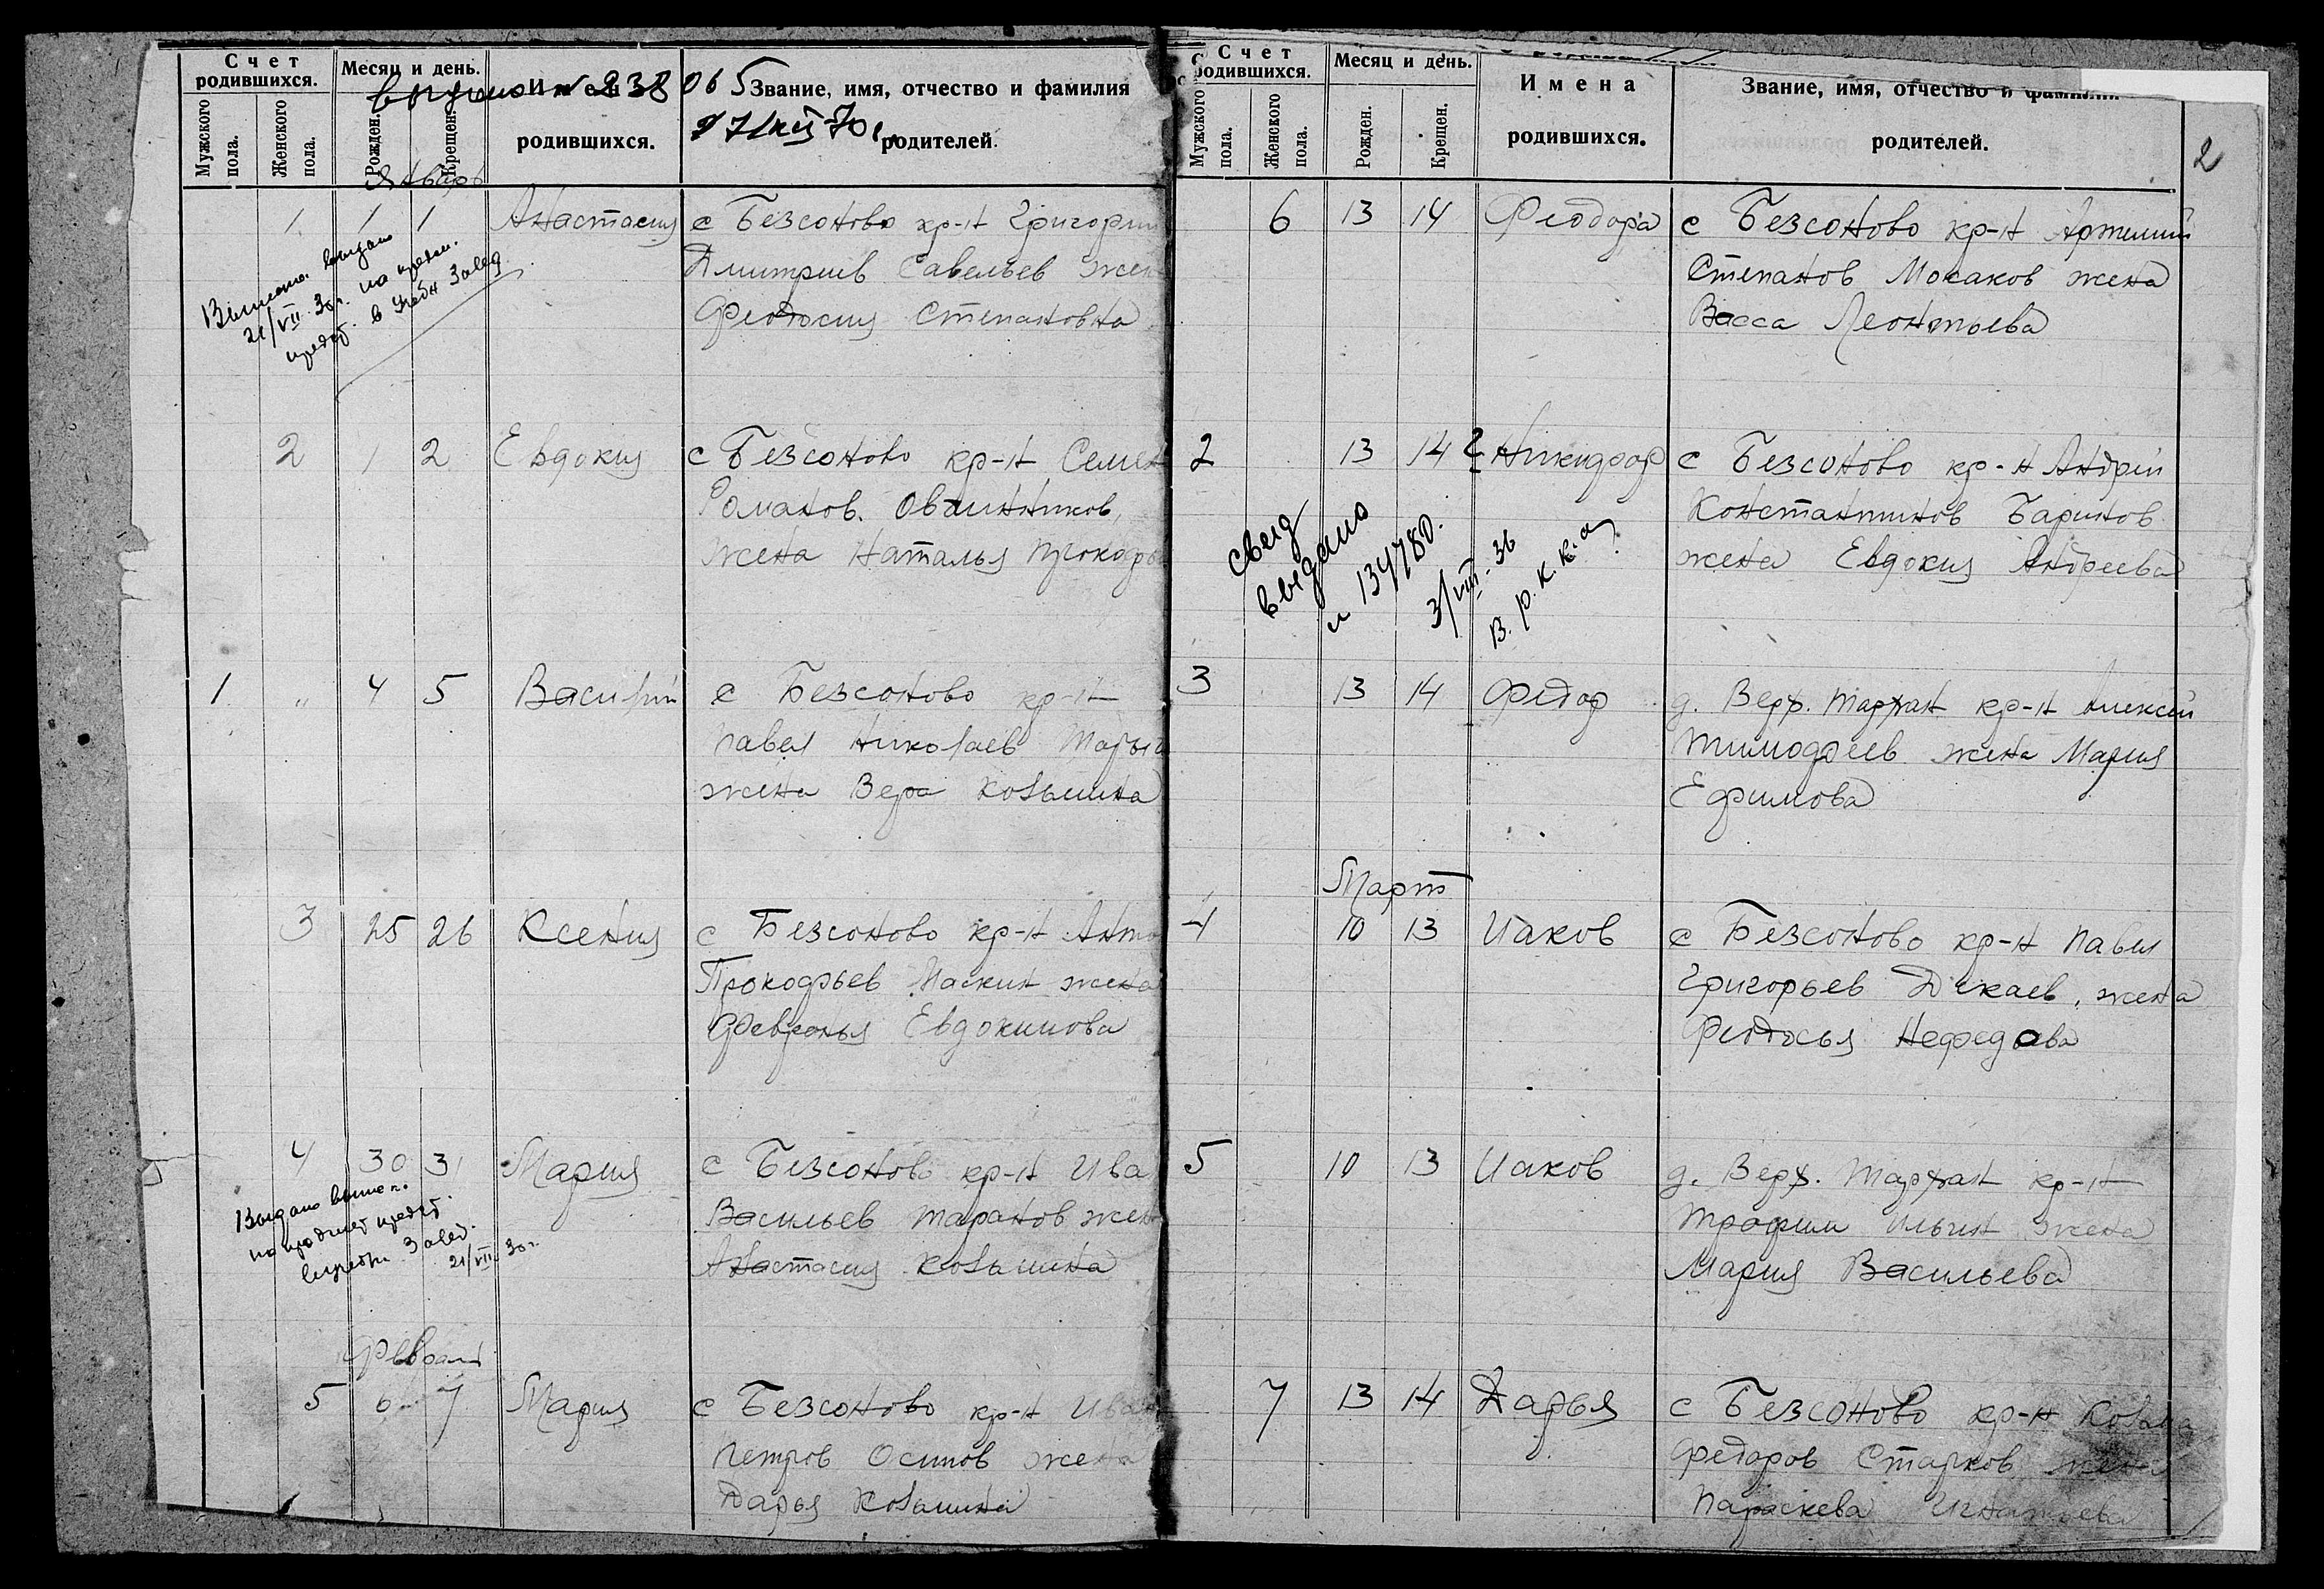 Счет родившихся.
Месяц и день.
Мужского пола.
Женского пола.
Рожден.
Крещен.
Имена родившихся.
Звание, имя, отчество и фамилия родителей.
Январь
1 1 1 Анастасия с Безсоново кр-н Григорий
Дмитриев Савельев жена
Феодосия Степановна
21/VII 30 г.
2 1 2 Евдокия с Безсоново кр-н Семен
Романов. Овчинников,
жена Наталья Прокофь
1 „ 4 5 Василий с Безсоново кр-н
Павел Николаев
жена Вера Козьмина
3 25 26 Ксения с Безсоново кр-н Анто
Прокофьев Маскин жена
Февронья Евдокимова
4 30 31 Мария с Безсоново кр-н Ива
Васильев Таранов жена
Анастасия Козьмина
21/VII 30 г.
Февраль
5 6 7 Мария с Безсоново кр-н Иван
Петров Осипов жена
Дарья Козьмина
Счет родившихся.
Месяц и день.
Мужского пола.
Женского пола.
Рожден.
Крещен.
Имена родившихся.
Звание, имя, отчество и фамилия родителей.
2
6 13 14 Феодора с Безсоново кр-н Артемий
Степанов Мокаков жена
Васса Леонтьева
2 13 14 Никифор с Безсоново кр-н Андрей
Константинов Баринов
жена Евдокия Андреева
свид
выдано
н 134780.
3/VIII-36
В. р. к. к. а
3 13 14 Федор д. Верх. Тархан кр-н Алексей
Тимофеев жена Мария
Ефимова
Март
4 10 13 Иаков с Безсоново кр-н Павел
Григорьев Дикаев, жена
Феодосья Нефедова
5 10 13 Иаков д. Верх. Тархан кр-н
Трофим Ильин жена
Мария Васильева
7 13 14 Дарья с Безсоново кр-н Козьма
Федоров Старков жена
Параскева Игнатьева